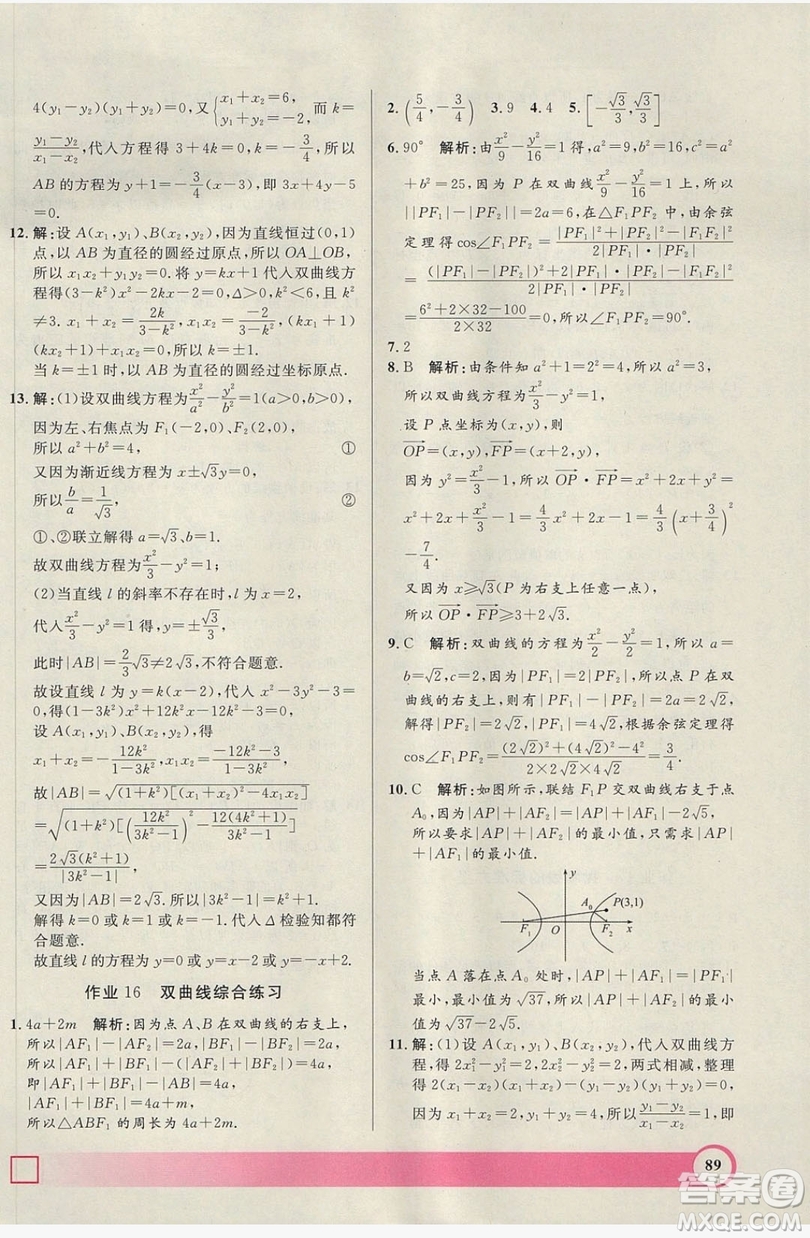 4(y₁-y₂)(y₁+y₂)=0,又{x₁+x₂=6, y₁+y₂=-2, 而 k=
(y₁-y₂)/(x₁-x₂),代入方程得 3+4k=0,解得 k=-3/4,所以
AB 的方程为 y+1=-3/4(x-3),即 3x+4y-5
=0.
12.解:设 A(x₁,y₁)、B(x₂,y₂),因为直线恒过(0,1)
点,以 AB 为直径的圆经过原点,所以 OA⊥OB,
所以 x₁x₂+y₁y₂=0.将 y=kx+1代入双曲线方
程得(3-k²)x²-2kx-2=0,Δ>0,k²<6,且 k²
≠3. x₁+x₂=2k/(3-k²),x₁x₂=-2/(3-k²),(kx₁+1)
(kx₂+1)+x₁x₂=0,解得 k=±1.
当 k=±1时,以 AB 为直径的圆经过坐标原点.
13.解:(1)设双曲线方程为x²/a²-y²/b²=1(a>0,b>0),
因为左、右焦点为 F₁(-2,0)、F₂(2,0),
所以 a²+b²=4, ①
又因为渐近线方程为 x±√3y=0,
所以b/a=1/√3, ②
①、②联立解得 a=√3、b=1.
故双曲线方程为x²/3-y²=1.
(2)当直线 l 的斜率不存在时,
代入x²/3-y²=1得,y=±√3/3,
此时|AB|=2/3√3≠2√3,不符合题意.
故设直线 l 为 y=k(x+2),代入 x²-3y²-3=
0,得(1-3k²)x²-12k²x-12k²-3=0.
设 A(x₁,y₁)、B(x₂,y₂),得
x₁+x₂=-12k²/(1-3k²),x₁x₂=(-12k²-3)/(1-3k²),
故|AB|=√((1+k²)[(x₁+x₂)²-4x₁x₂])
=√((1+k²)[(12k²/(3k²-1))²-12(4k²+1)/(3k²-1)])
=2√3(k²+1)/|3k²-1|.
又因为|AB|=2√3,所以k²+1=|3k²-1|.
解得 k=0或 k=1或 k=-1,代入 Δ 检验知都符
合题意.
故直线 l 的方程为 y=0或 y=x+2或 y=-x-2.
作业 16 双曲线综合练习
1. 4a+2m 解析:因为点 A、B 在双曲线的右支上,
所以|AF₁|-|AF₂|=2a,|BF₁|-|BF₂|=2a,
所以|AF₁|+|BF₁|-(|AF₂|+|BF₂|)=4a,
即|AF₁|+|BF₁|-|AB|=4a,
所以|AF₁|+|BF₁|=4a+m,
所以△ABF₁ 的周长为 4a+2m.
2.(5/4,-3/4) 3. 9 4. 4 5.[-√3/3,√3/3]
6. 90° 解析:由x²/9-y²/16=1得,a²=9,b²=16,c²=a²
+b²=25,因为 P 在双曲线x²/9-y²/16=1上,所以
||PF₁|-|PF₂||=2a=6,在△F₁PF₂中,由余弦
定理得 cos∠F₁PF₂=(|PF₁|²+|PF₂|²-|F₁F₂|²)/(2|PF₁|·|PF₂|)
=((|PF₁|-|PF₂|)²+2|PF₁|·|PF₂|-|F₁F₂|²)/(2|PF₁|·|PF₂|)
=(6²+2×32-100)/(2×32)=0,所以∠F₁PF₂=90°.
7. 2
8. B 解析:由条件知 a²+1=2²=4,所以 a²=3,
所以双曲线方程为x²/3-y²=1.
设 P 点坐标为(x,y),
OP=(x,y),FP=(x+2,y),
因为 y²=x²/3-1,所以OP·FP=x²+2x+y²=
x²+2x+x²/3-1=4/3x²+2x-1=4/3(x+3/4)²
-7/4.
又因为 x≥√3(P 为右支上任意一点),
所以OP·FP≥3+2√3.
9. C 解析:双曲线的方程为x²/2-y²/2=1,所以 a=
b=√2,c=2,因为|PF₁|=2|PF₂|,所以点 P 在双
曲线的右支上,则有|PF₁|-|PF₂|=2a=2√2,
解得|PF₂|=2√2,|PF₁|=4√2,根据余弦定理得
cos∠F₁PF₂=((2√2)²+(4√2)²-4²)/(2×2√2×4√2)=3/4.
10. C 解析:如图所示,联结 F₁P 交双曲线右支于点
A₀,因为|AP|+|AF₂|=|AP|+|AF₁|-2√5,
所以要求|AP|+|AF₂|的最小值,只需求|AP|
+|AF₁|的最小值.
y
A₀
P(3,1)
F₁ O F₂ x
当点 A 落在点 A₀ 处时,|AP|+|AF₁|=|PF₁|
最小,最小值为√37,所以|AP|+|AF₂|的最小值
为√37-2√5.
11.解:(1)设 A(x₁,y₁)、B(x₂,y₂),代入双曲线方
程,得 2x₁²-y₁²=2,2x₂²-y₂²=2,两式相减,整理
得 2(x₁-x₂)(x₁+x₂)-(y₁-y₂)(y₁+y₂)=0.
因为 x₁+x₂=4,y₁+y₂=2,所以(y₁-y₂)/(x₁-x₂)=4,即
89
答案圈
MXQE.COM